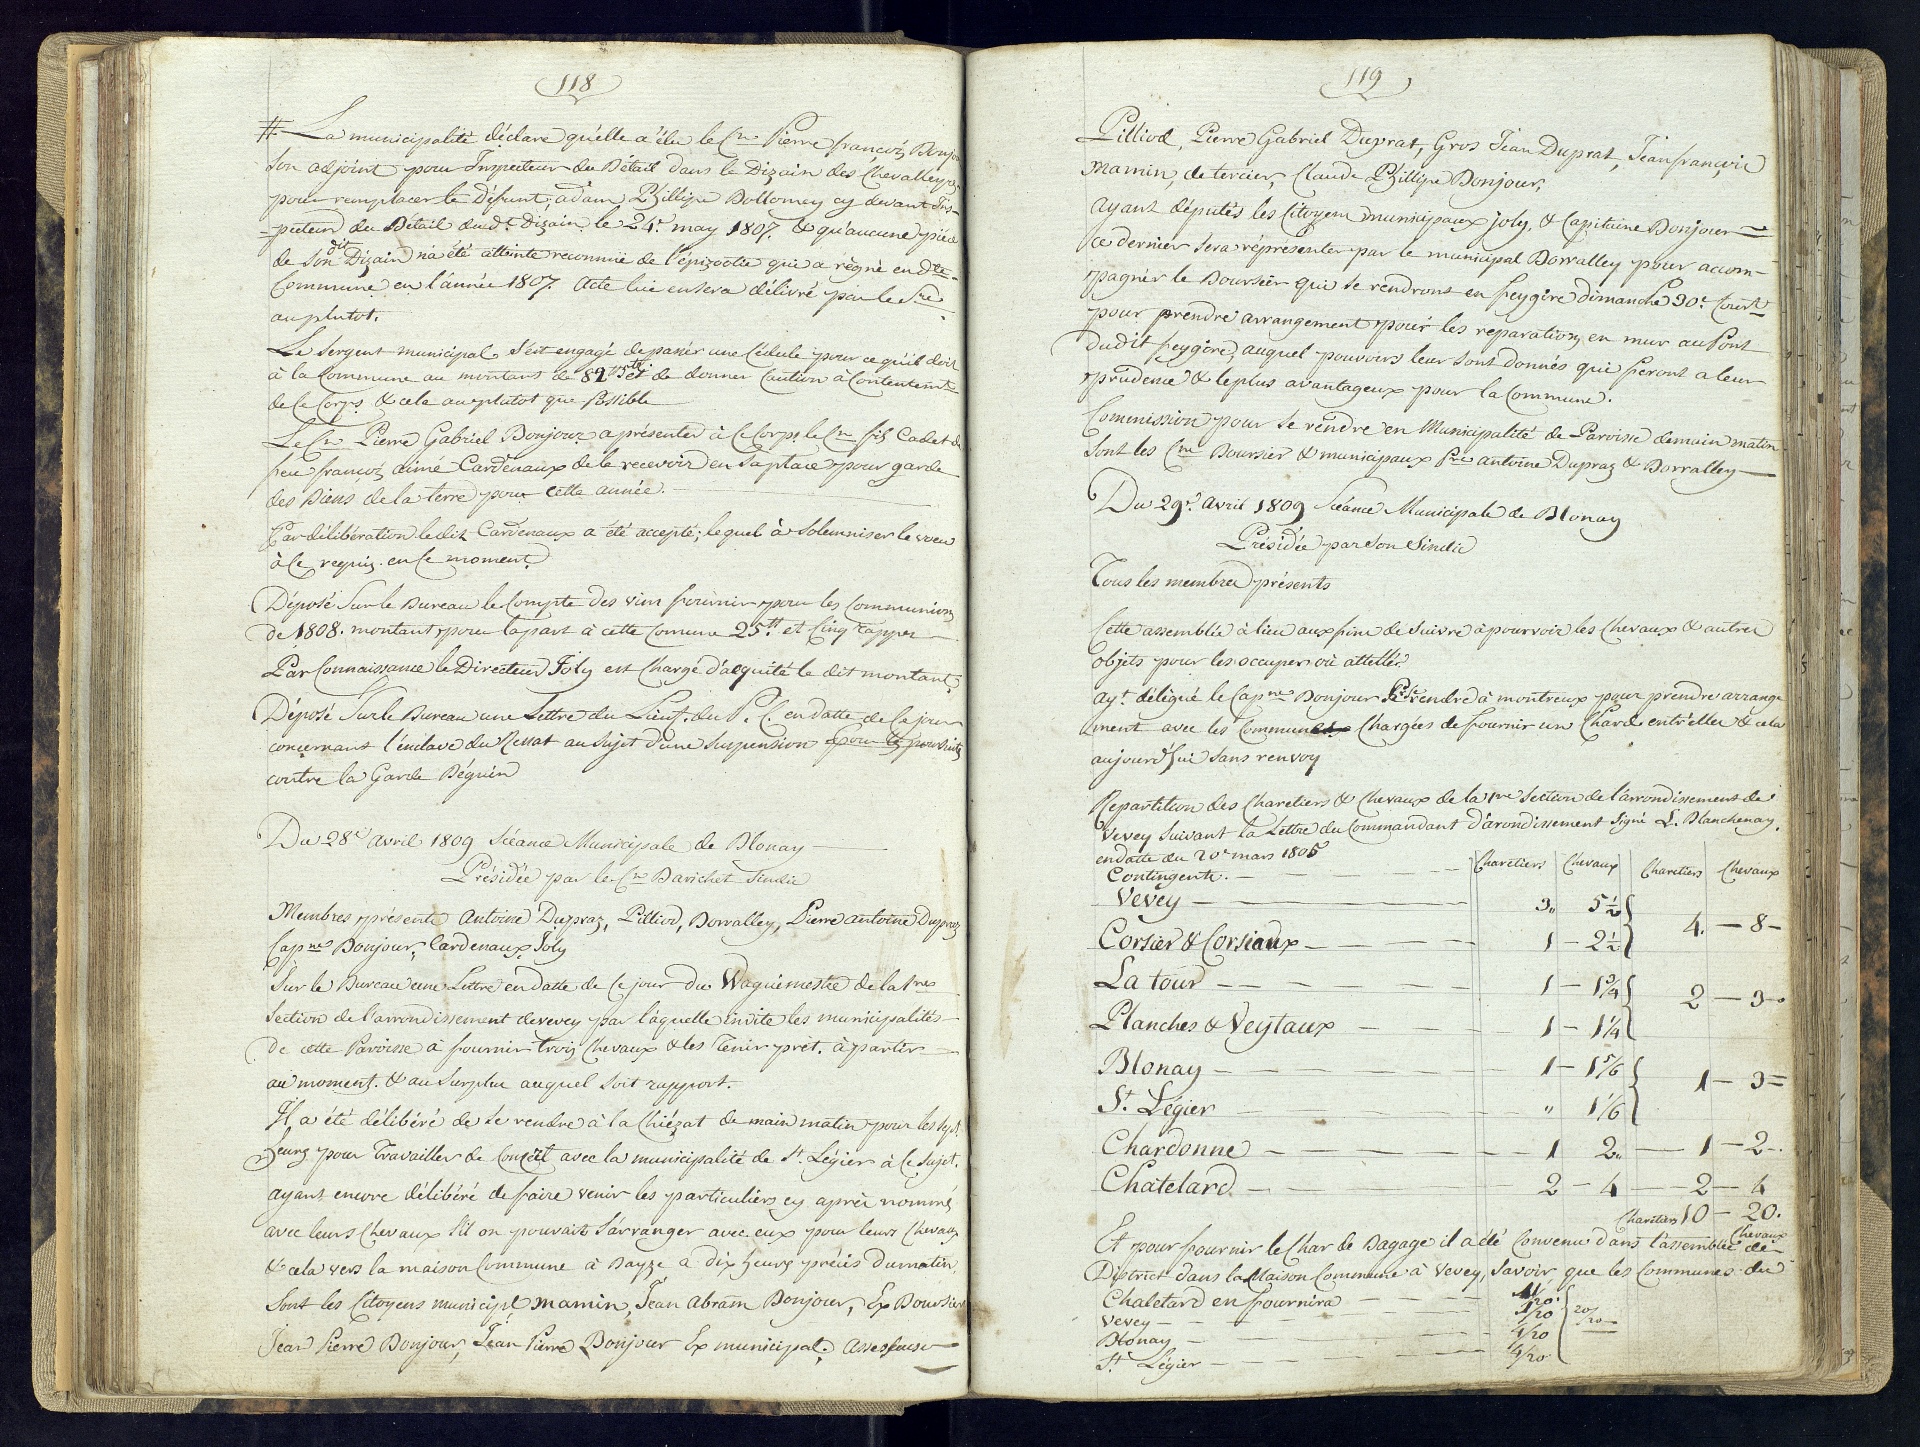 118
# La municipalité déclare qu'elle a élu le Cn Pierre françois Bonjo
son adjoint pour Inspecteur du Bétail dans le Dizain des Chevalleyres
pour remplacer le Défunt, adam Phillipe Dollomey cy devant Ins-
-pecteur du Bétail dud.t dizain le 24e. may 1807. & qu'aucune pièce
de son dit Dizain n'a été atteinte reconnue de l'épizootie qui a règné en d.te
Commune en l'année 1807. Acte lui en sera délivré par le S.re
au plutot.
Le Sergent municipal s'est engagé de passer une Cédule pour ce qu'il doit
à la Commune au montant de 82 & de donner Caution à Contentem.t
de ce Corps & cela au plutot que possible
Le Cn Pierre Gabriel Bonjour a présenter à ce Corps le Cn fils Cadet de
feu françois aimé Cardenaux de le recevoir en sa place pour garde
des Biens de la terre pour cette année.
Par délibération le dit Cardenaux a été accepté; lequel à Solemniser le voeu
à ce requis en ce moment
Déposé sur le Bureau le Compte des vins fournir pour les Communions
de 1808. montant pour la part à cette Comune 25 tt et Cinq rappes
Par Connaissance le Directeur Joly est Chargé d'acquité le dit montant.
Déposé Sur le Bureau une Lettre du Lieut. du P. C. en datte de ce jour
concernant l'enclave du Ressat au sujet d'une suspension pour la poursuite
contre la Garde Béguin
Du 28e avril 1809 Séance Municipale de Blonay
Présidée par le Cn Barichet Sindic
Membres présents Antoine Dupraz, Pilliod, Borralley, Pierre antoine Dupraz
Capne Bonjour, Cardenaux, Joly
Sur le Bureau une Lettre en datte de ce jour du Waguemestre de la 1res
section de l'arrondissement de vevey par laquelle invite les municipalités
de cette Paroisse à fournir trois Chevaux & les Tenir prêt. à partir
au moment. & au Surplus auquel soit rapport.
Il a été délibéré de se rendre à la Chiésaz demain matin pour les sept
heures pour Travailler de Concert avec la municipalité de St. Légier à ce sujet.
ayant encore délibéré de faire venir les particuliers cy après nommé
avec leurs Chevaux s'il on pouvait s'arranger avec eux pour leurs Chevaux
& cela vers la maison Commune à Bayse à dix heures précis du matin
Sont les Citoyens municipl mamin, Jean Abram Bonjour, Ex Boursier
Jean Pierre Bonjour, Jean Pierre Bonjour Ex municipal, assesseur
119
Pilliod, Pierre Gabriel Duprat, Gros Jean Duprat, Jean françois
mamin, de tercier, Claude Phillipe Bonjour,
Ayant députés les Citoyens municipaux joly, & Capitaine Bonjour
ce dernier sera réprésenter par le municipal Borralley pour accom-
pagner le Boursier qui se rendront en feygire dimanche 30e. Cour.t
pour prendre arrangement pour les reparations en mur au Pont
dudit feygire, auquel pouvoirs leur sont donnés qui feront a leur
prudence & le plus avantageux pour la Commune.
Commission pour se rendre en Municipalité de Paroisse demain matin
Sont les Cns Boursier & municipaux Pre antoine Dupraz & Borralley
Du 29e. Avril 1809 Séance Municipale de Blonay
Présidée par son Sindic
Tous les membres présents
Cette assemblée à lieu aux fins de suivre à pourvoir les Chevaux & autres
objets pour les occuper où attellés
Ayt délégué le Capne Bonjour se rendre à montreux pour prendre arrange
ment avec les Communes Chargées de fournir un Char entr'elles & cela
aujourd'hui sans renvoy
Repartition des Charetiers & Chevaux de la 1re Section de l'arrondissement de
Vevey suivant la Lettre du Commandant d'arondissement signé L. Blanchenay,
en datte du 20e mars 1805
Contingents. Charetiers Chevaux Charetiers Chevaux
Vevey 3 5½ 4. 8
Corsier & Corsiaux 1 2½
La tour 1 1¾ 2 3
Planches & Veytaux 1 1¼
Blonay 1 1 5/6 1 3
St. Légier " 1 1/6
Chardonne 1 2 1 2
Chatelard 2 4 2 4
Charetiers 10 20. Chevaux
Et pour fournir le Char de Bagage il a été Convenu dans l'assemblée de
District dans la Maison Commune à Vevey, Savoir que les Communes du
Chaletard en fournira
Vevey
Blonay 4/20 20/20
St. Légier 4/20